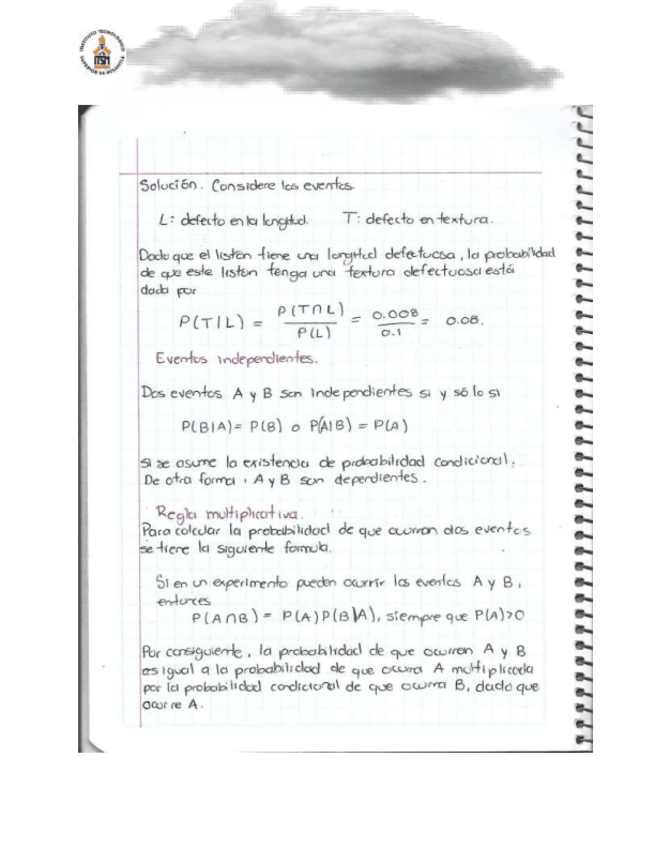 INSTITUTO TECNOLÓGICO
ITSM
Solución. Considere los eventos.
L: defecto en la longitud. T: defecto en textura.
Dado que el listón tiene una longitud defectuosa, la probabilidad
de que este listón tenga una textura defectuosa está
dada por
P(T|L) = P(T∩L) / P(L) = 0.008 / 0.1 = 0.08.
Eventos independientes.
Dos eventos A y B son independientes si y sólo si
P(B|A) = P(B) o P(A|B) = P(A)
si se asume la existencia de probabilidad condicional.
De otra forma, A y B son dependientes.
Regla multiplicativa.
Para calcular la probabilidad de que ocurran dos eventos
se tiene la siguiente formula.
Si en un experimento pueden ocurrir los eventos A y B,
entonces
P(A∩B) = P(A)P(B|A), siempre que P(A)>0
Por consiguiente, la probabilidad de que ocurren A y B
es igual a la probabilidad de que ocurra A multiplicada
por la probabilidad condicional de que ocurra B, dado que
ocurre A.